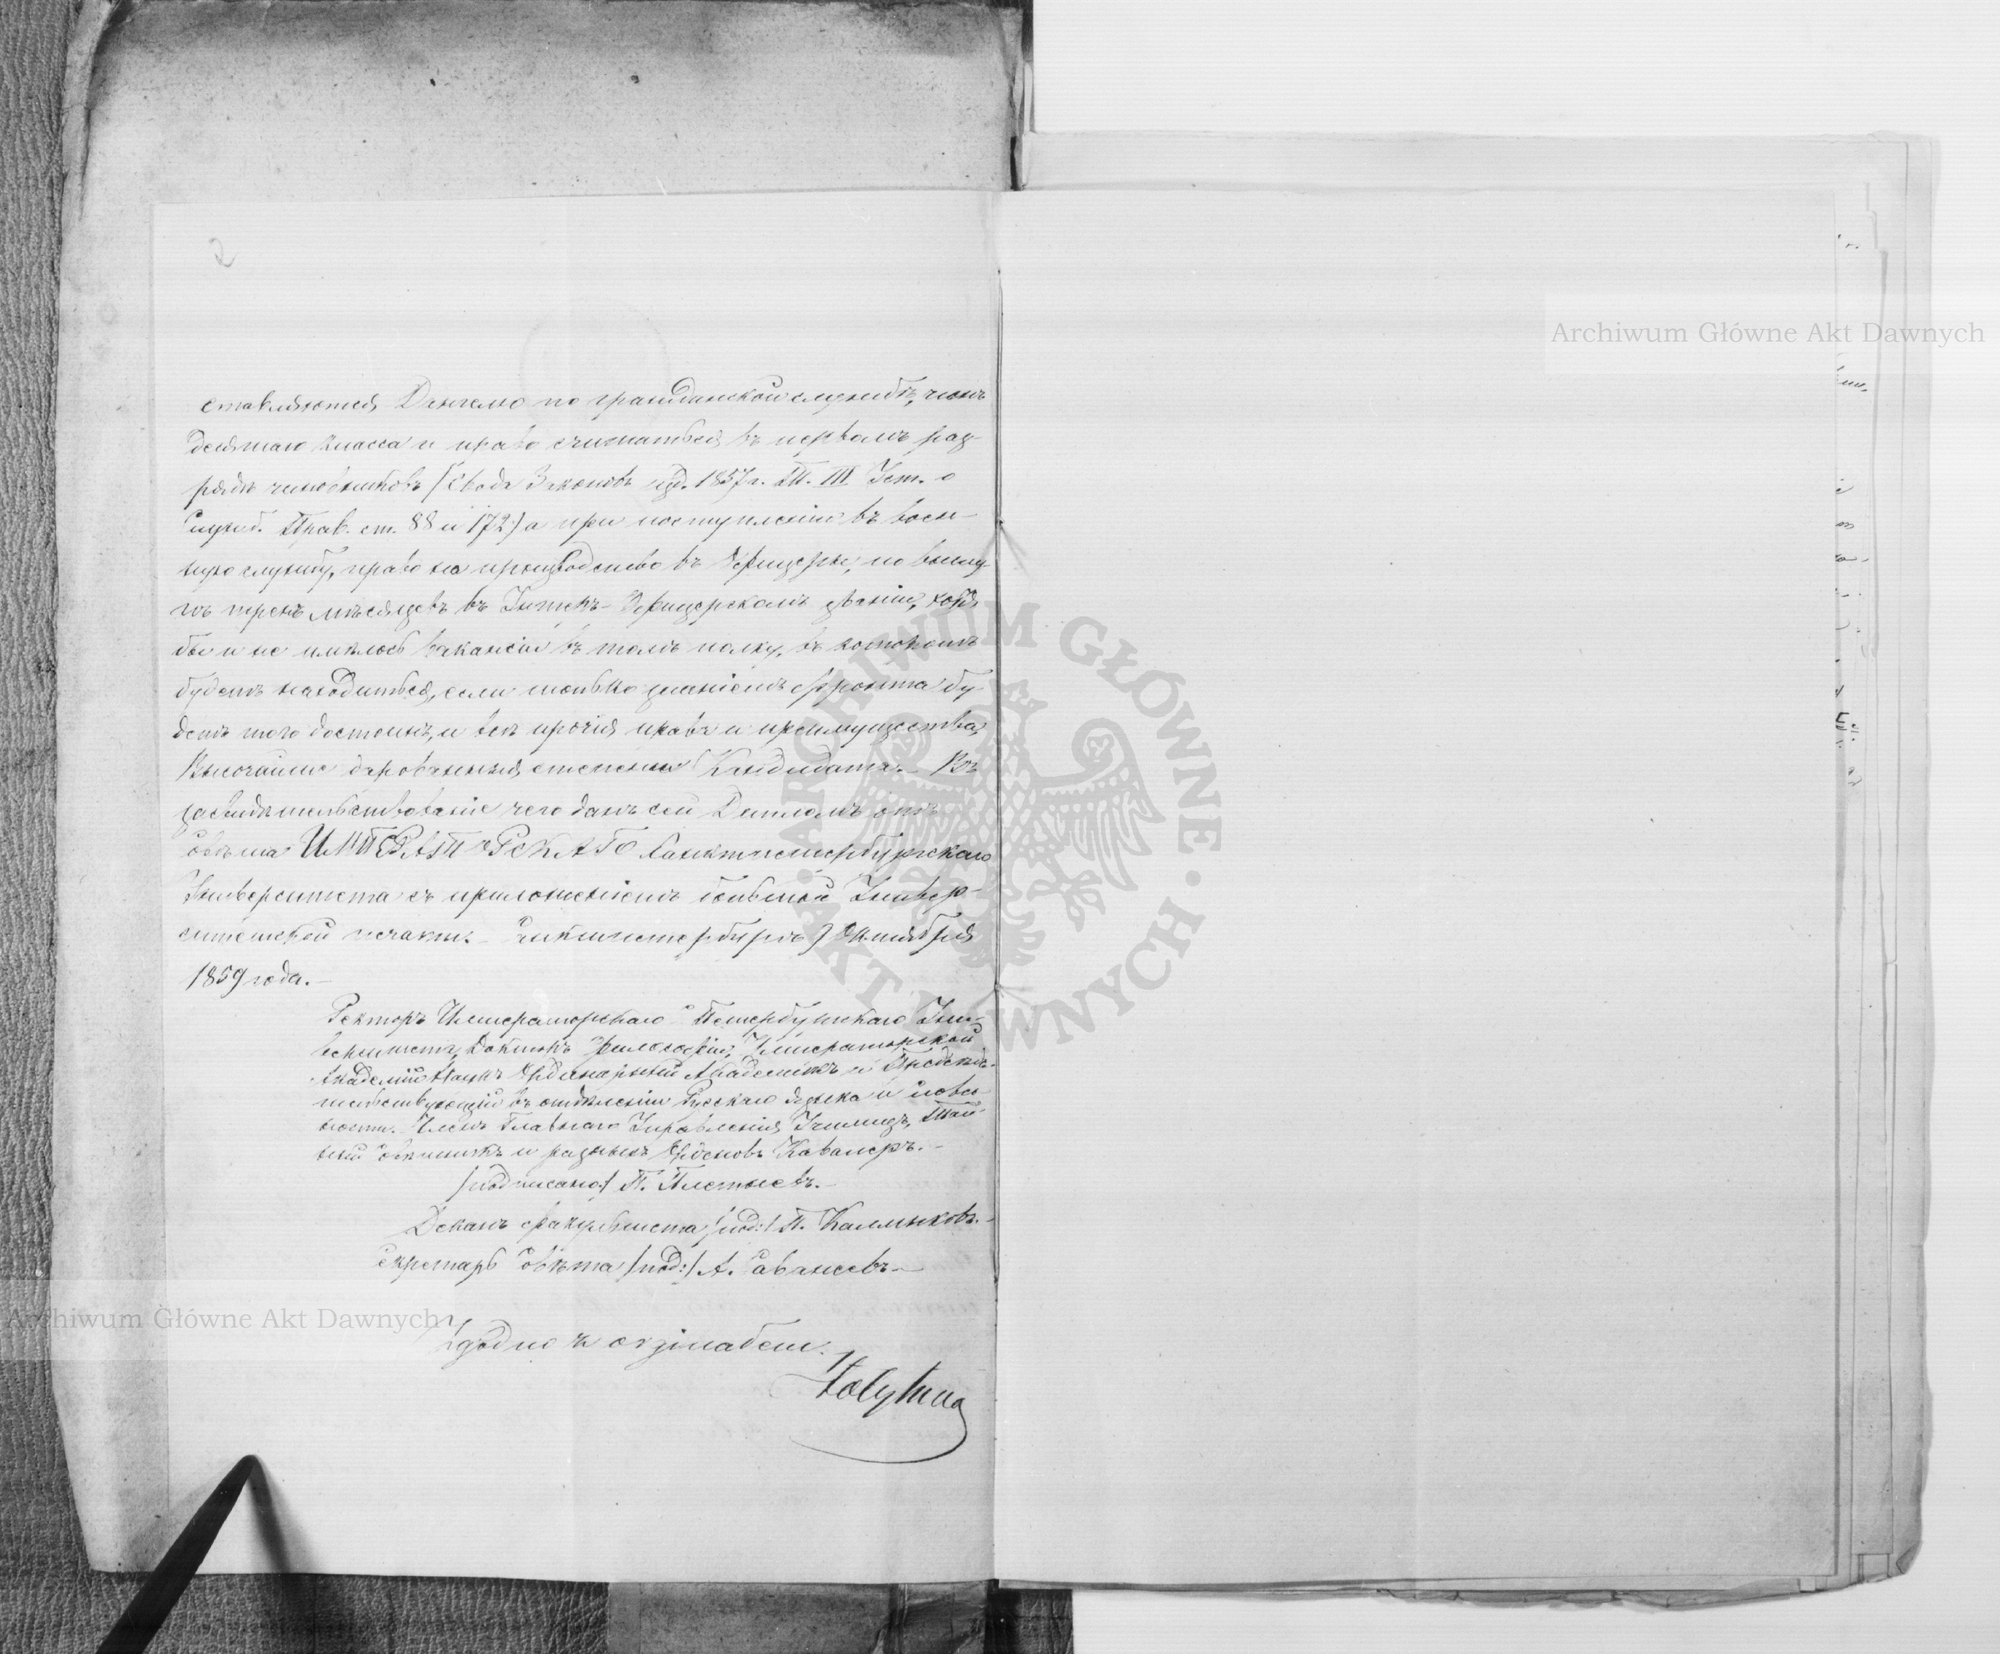 2
ставляются Дангелю по гражданской службѣ, чинъ
десятаго класса и право считаться въ первомъ раз-
рядѣ чиновниковъ /Свода Законовъ изд. 1857 г. Т. III Уст. о
Служб. Прав. ст. 88 и 172/ а при поступленіи въ воен-
ную службу, право на производство въ Офицеры, по выслу-
гѣ трехъ мѣсяцевъ въ Унтеръ-Офицерскомъ званіи, хотя
бы и не имѣлось вакансіи въ томъ полку, въ которомъ
будетъ находиться, если только знаніемъ фронта бу-
детъ того достоинъ, и всѣ прочія права и преимущества,
Высочайше дарованныя степени Кандидата. — Въ
засвидѣтельствованіе чего данъ сей Дипломъ отъ
Совѣта ИМПЕРАТОРСКАГО Санктпетербургскаго
Университета съ приложеніемъ большой Универ-
ситетской печати. — Санктпетербургъ 9 Октября
1859 года. —
Ректоръ Императорскаго С. Петербургскаго Уни-
верситета, Докторъ Философіи, Императорской
Академіи Наукъ Ординарный Академикъ и Предсѣда-
тельствующій въ отдѣленіи Русскаго языка и слове-
ности. Членъ Главнаго Управленія Училищъ, Тай-
ный Совѣтникъ и разныхъ Орденовъ Кавалеръ. —
/подписано/ П. Плетневъ. —
Деканъ Факультета /под:/ П. Калмыковъ. —
Секретарь Совѣта /под:/ А. Савансевъ —
Zgodno z orginałem.
Archiwum Główne Akt Dawnych
Archiwum Główne Akt Dawnych
ARCHIWUM GŁÓWNE · AKT DAWNYCH ·